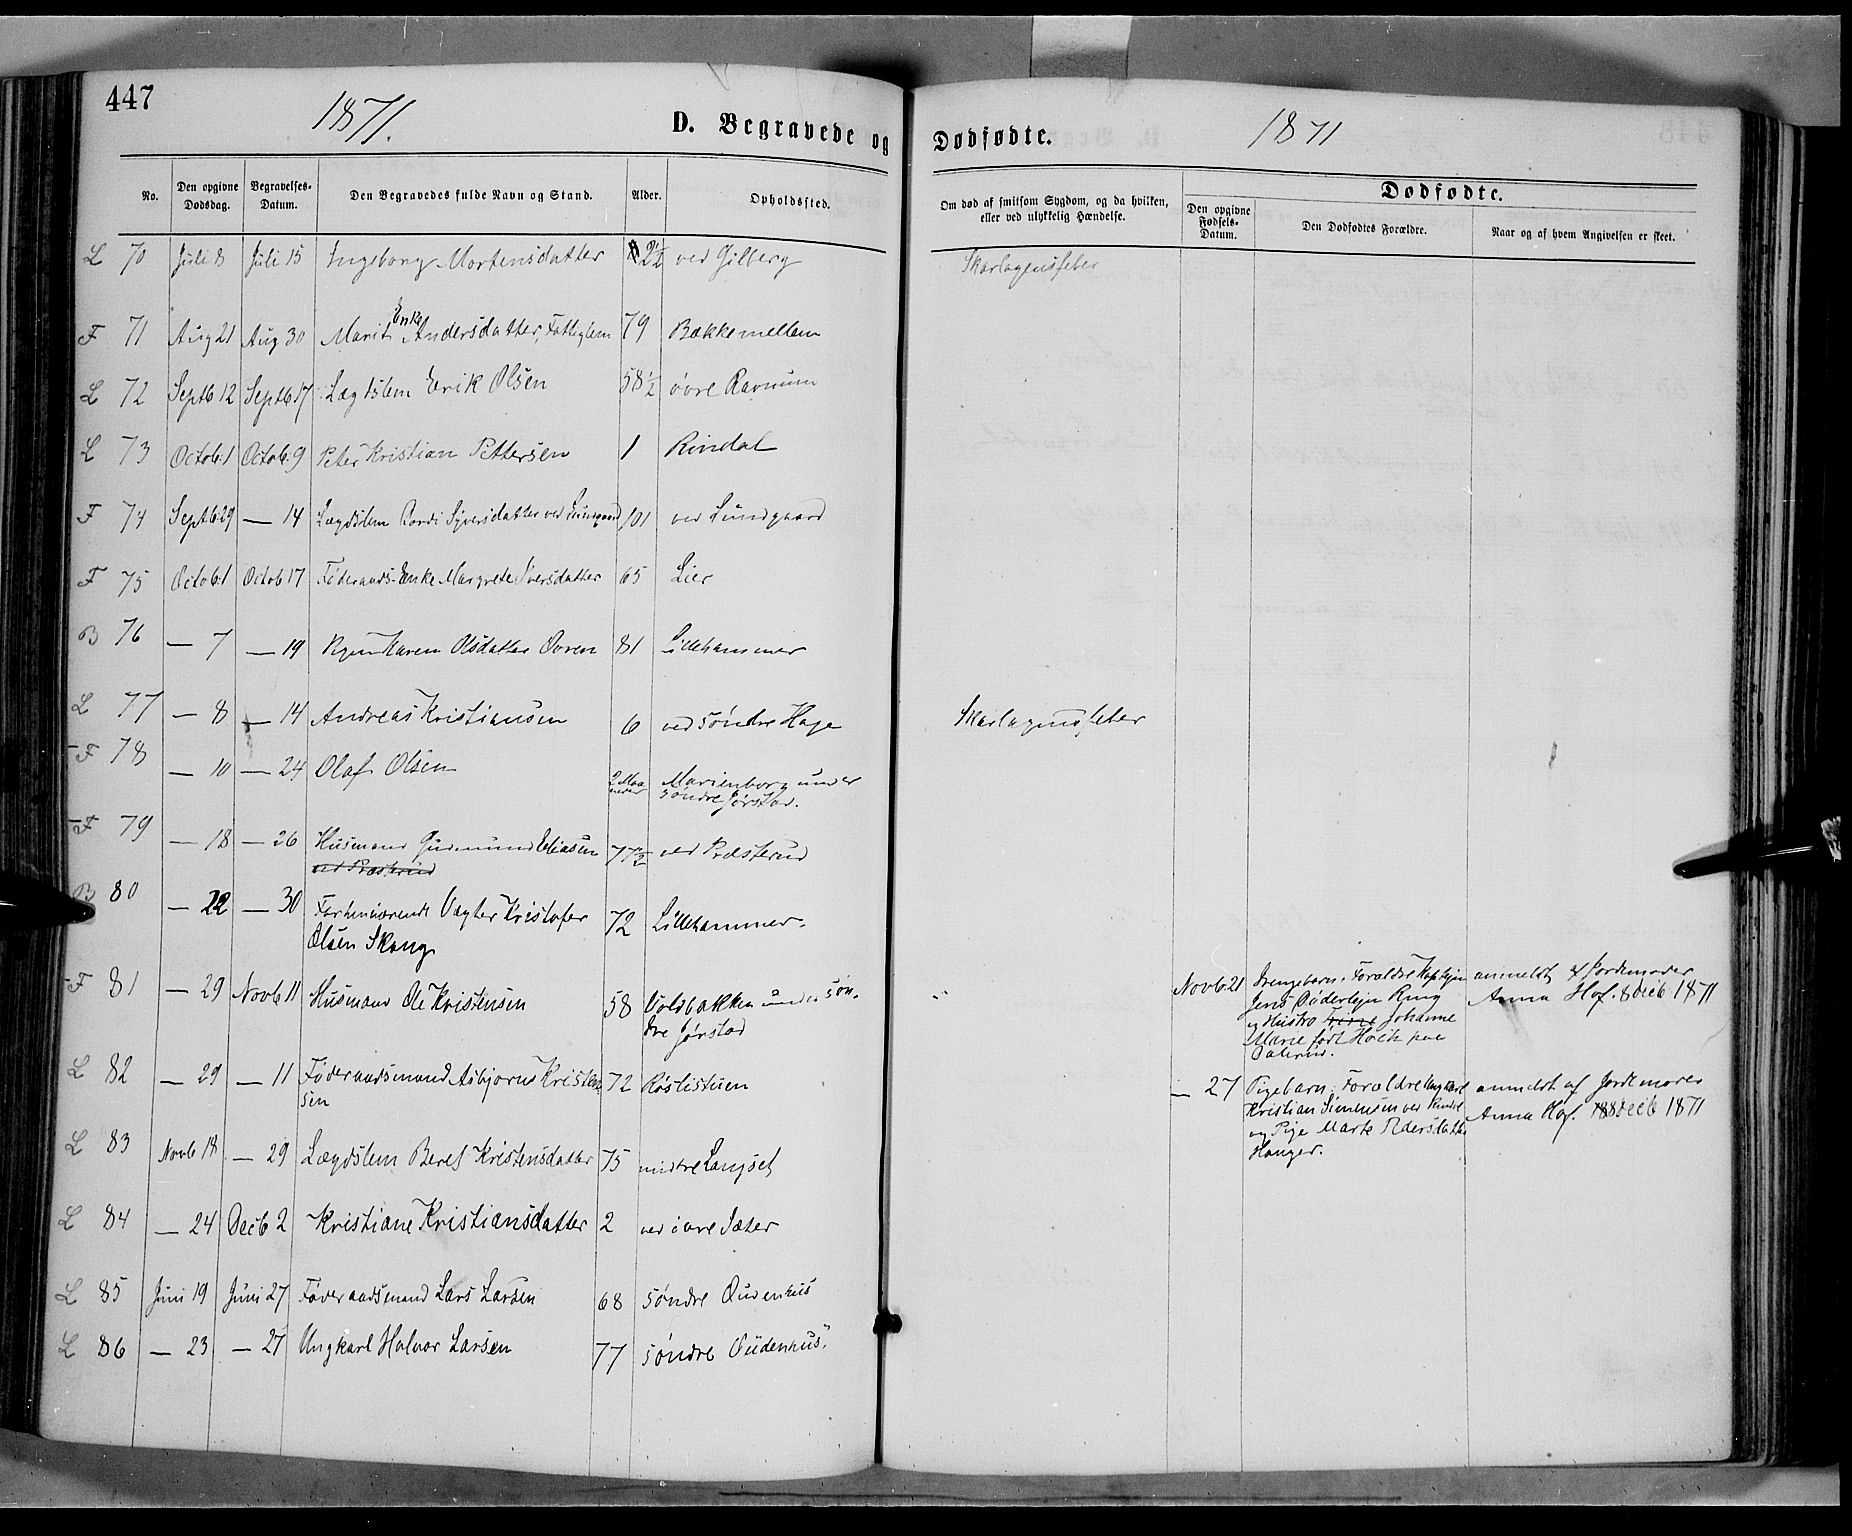 447
1871.
D. Begravede og Dødfødte.
1871
No.
Den opgivne Dødsdag.
Begravelses-Datum.
Den Begravedes fulde Navn og Stand.
Alder.
Opholdssted.
Om død af smitsom Sygdom, og da hvilken, eller ved ulykkelig Hændelse.
Dødfødte.
Den opgivne Fødsels-Datum.
Den Dødfødtes Forældre.
Naar og af hvem Angivelsen er skeet.
L 70 Juli 8 Juli 15 Ingeborg Mortensdatter 2½ ved Gilberg Skarlagensfeber
Enke
F 71 Aug 21 Aug 30 Marit Andersdatter, Fattiglem 79 Bækkemellem
L 72 Septb 12 Septb 17 Lægdslem Erik Olsen 58½ øvre Ravnum
L 73 Octob: 1 Octob: 9 Peter Kristian Pettersen 1 Rindal
F 74 Septb 29 — 14 Lægdslem Rondi Syversdatter ved Lundgaard 101 ved Lundgaard
F 75 Octob: 1 Octob 17 Føderaads-Enke Margrete Iversdatter 65 Lier
B 76 — 7 — 19 Pigen Karen Olsdatter Ovren 81 Lillehammer
L 77 — 8 — 14 Andreas Kristiansen 6 ved søndre Hage Skarlagensfeber
F 78 — 10 — 24 Olaf Olsen 2 Maaneder Marienborg under
søndre Jørstad.
F 79 — 18 — 26 Husmand Gudmund Eliasen 77½ ved Præsterud
ved Præsterud
B 80 — 22 — 30 Forhenværende Vægter Kristofer 72 Lillehammer.
Olsen Skoug
F 81 — 29 Novb 11 Husmand Ole Kristensen 58 Voldbakken under søn-
dre Jørstad
L 82 — 29 — 11 Føderaadsmand Asbjørn Kristen- 72 Røslistuen
sen
L 83 Novb 18 — 29 Lægdslem Beret Kristensdatter 75 midtre Langset
L 84 — 24 Decb 2 Kristiane Kristiansdatter 2 ved øvre Sæter
L 85 Juni 19 Juni 27 Føderaadsmand Lars Larsen 68 søndre Oudenhus
L 86 — 23 — 27 Ungkarl Halvor Larsen 77 søndre Oudenhus.
Novb. 21 Drengebarn. Forældre Kaptejn anmeldt af Jordemoder
Jens Døderlejn Ring Anna Hof. 8 Decb 1871
og Hustro Trine Johanne
Marie født Holck paa
— 27 Pigebarn. Forældre Ungkarl anmeldt af Jordemoder
Kristian Simensen ved Rindal Anna Hof. 8 Decb 1871
og Pige Marte Pedersdatter
Hanger.